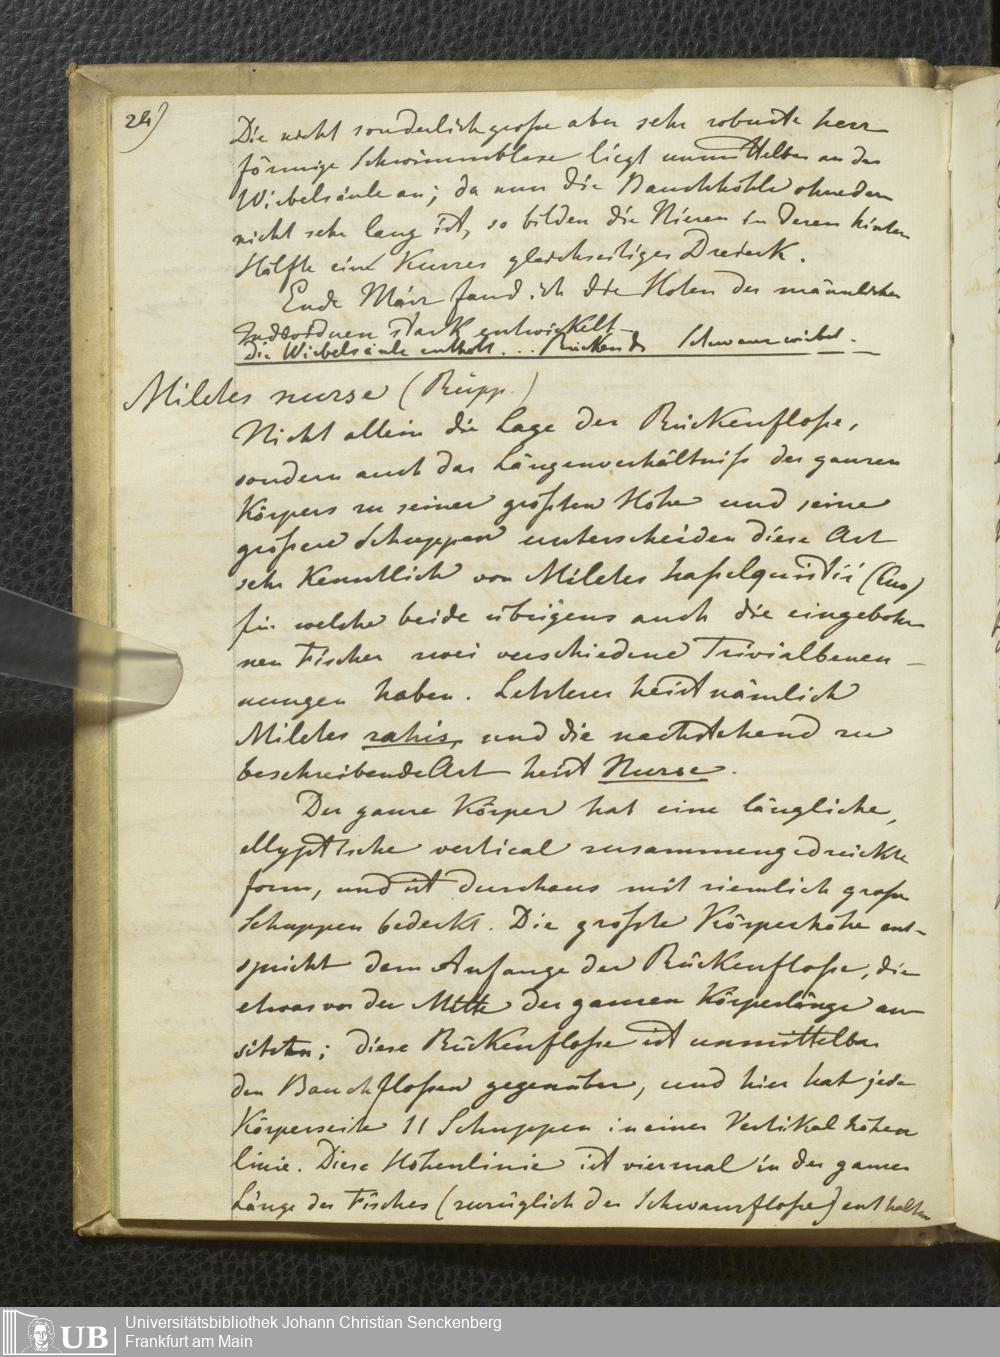 24)
Die nicht sonderlich große aber sehr robuste herz
förmige Schwimmblase liegt unmittelbar an der
Wirbelsäule an; da nun die Bauchhöhle ohnedem
nicht sehr lang ist, so bilden die Nieren in deren hintern
Hälfte ein kurzes gleichseitiges Dreieck.
Ende März fand ich die Hoden der männlichen
stark entwickelt
die Wirbelsäule enthält ... Rücken u. Schwanzwirbel.
Miletes nurse (Rüpp.)
Nicht allein die Lage der Rückenfloße,
sondern auch das Längenverhältniß des ganzen
Körpers zu seiner größten Höhe und seine
größere Schuppen unterscheiden diese Art
sehr kenntlich von Miletes haßelquistii (Cuv)
für welche beide übrigens auch die eingebohr
nen Fischer zwei verschiedene Trivialbenen-
nungen haben. Letzterer heist nämlich
Miletes rahis, und die nachstehend zu
beschreibende Art heist Nurse.
Der ganze Körper hat eine längliche,
ellyptische vertical zusammengedrückte
form, und ist durchaus mit ziemlich große
Schuppen bedeckt. Die größte Körperhöhe ent-
spricht dem Anfange der Rückenfloße, die
etwas vor der Mitte der ganzen Körperlänge an
sitzten; diese Rückenfloße ist unmittelbar
den Bauchfloßen gegenüber, und hier hat jede
Körperseite 11 Schuppen in einer Vertikal höhen
linie. Diese Höhenlinie ist viermal in der ganzen
Länge des Fisches (zurüglich der Schwanzfloße) enthalten
UB
Universitätsbibliothek Johann Christian Senckenberg
Frankfurt am Main